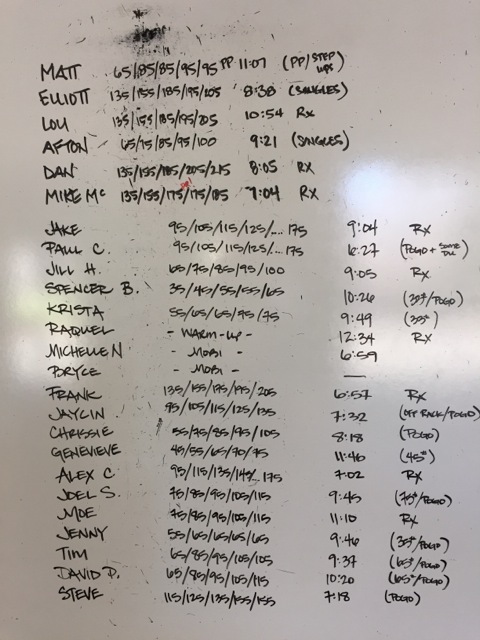 MATT 65/85/85/95/95 PP 11:07 (PP/STEP UPS)
ELLIOTT 135/155/185/195/205 8:38 (SINGLES)
LOU 135/155/185/195/205 10:54 RX
AFTON 65/75/85/95/100 9:21 (SINGLES)
DAN 135/155/185/205/215 8:05 RX
MIKE Mc 135/155/175/175/185 7:04 RX
JAKE 95/105/115/125/... 175 9:04 RX
PAUL C. 95/105/115/125/... 175 6:27 (POGO + SOME DU)
JILL H. 65/75/85/95/100 9:05 RX
SPENCER B. 35/45/55/55/65 10:26 (35#/POGO)
KRISTA 55/65/65/95/75 9:49 (35#)
RAQUEL - WARM-UP - 12:34 RX
MICHELLE N - MOBI - 6:59
BRYCE - MOBI - —
FRANK 135/155/175/195/205 6:57 RX
JAYLIN 95/105/115/125/135 7:32 (OFF RACK/POGO)
CHRISSIE 55/75/85/95/105 8:18 (POGO)
GENEVIEVE 45/55/65/70/75 11:46 (45#)
ALEX C 95/115/135/145/... 175 7:02 RX
JOEL S. 75/85/95/105/115 9:45 (75#/POGO)
MOE 75/85/95/105/115 11:10 RX
JENNY 55/65/65/65/65 9:46 (35#/POGO)
TIM 65/85/95/105/105 9:37 (65#/POGO)
DAVID P. 65/85/95/105/115 10:20 (65#/POGO)
STEVE 115/125/135/155/155 7:18 (POGO)